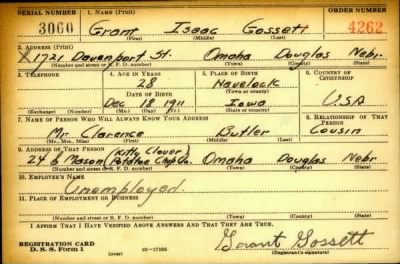 SERIAL NUMBER 1. NAME (Print) ORDER NUMBER
3060 Grant Isaac Gossett 4262
(First) (Middle) (Last)
2. ADDRESS (Print)
X1721 Davenport St. Omaha Douglas Nebr.
(Number and street or R. F. D. number) (Town) (County) (State)
3. TELEPHONE 4. AGE IN YEARS 5. PLACE OF BIRTH 6. COUNTRY OF CITIZENSHIP
28 Havelock
DATE OF BIRTH (Town or county)
Dec 18 1911 Iowa USA
(Exchange) (Number) (Mo.) (Day) (Yr.) (State or country)
7. NAME OF PERSON WHO WILL ALWAYS KNOW YOUR ADDRESS 8. RELATIONSHIP OF THAT PERSON
Mr. Clarence Butler Cousin
(Mr., Mrs., Miss) (First) (Middle) (Last)
9. ADDRESS OF THAT PERSON (Kitty Clover)
24 & Mason (Potatoe Chip Co.) Omaha Douglas Nebr
(Number and street or R. F. D. number) (Town) (County) (State)
10. EMPLOYER'S NAME
Unemployed.
11. PLACE OF EMPLOYMENT OR BUSINESS
(Number and street or R. F. D. number) (Town) (County) (State)
I AFFIRM THAT I HAVE VERIFIED ABOVE ANSWERS AND THAT THEY ARE TRUE.
REGISTRATION CARD Grant Gossett
D. S. S. Form 1 (over) 16-17105 (Registrant's signature)